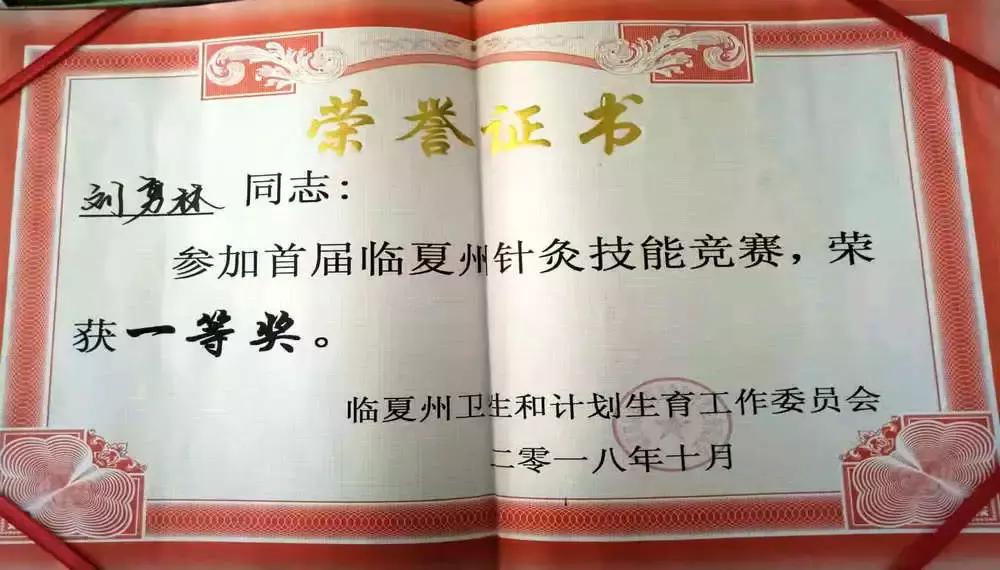 荣誉证书
刘勇林 同志：
参加首届临夏州针灸技能竞赛，荣
获一等奖。
临夏州卫生和计划生育工作委员会
二零一八年十月